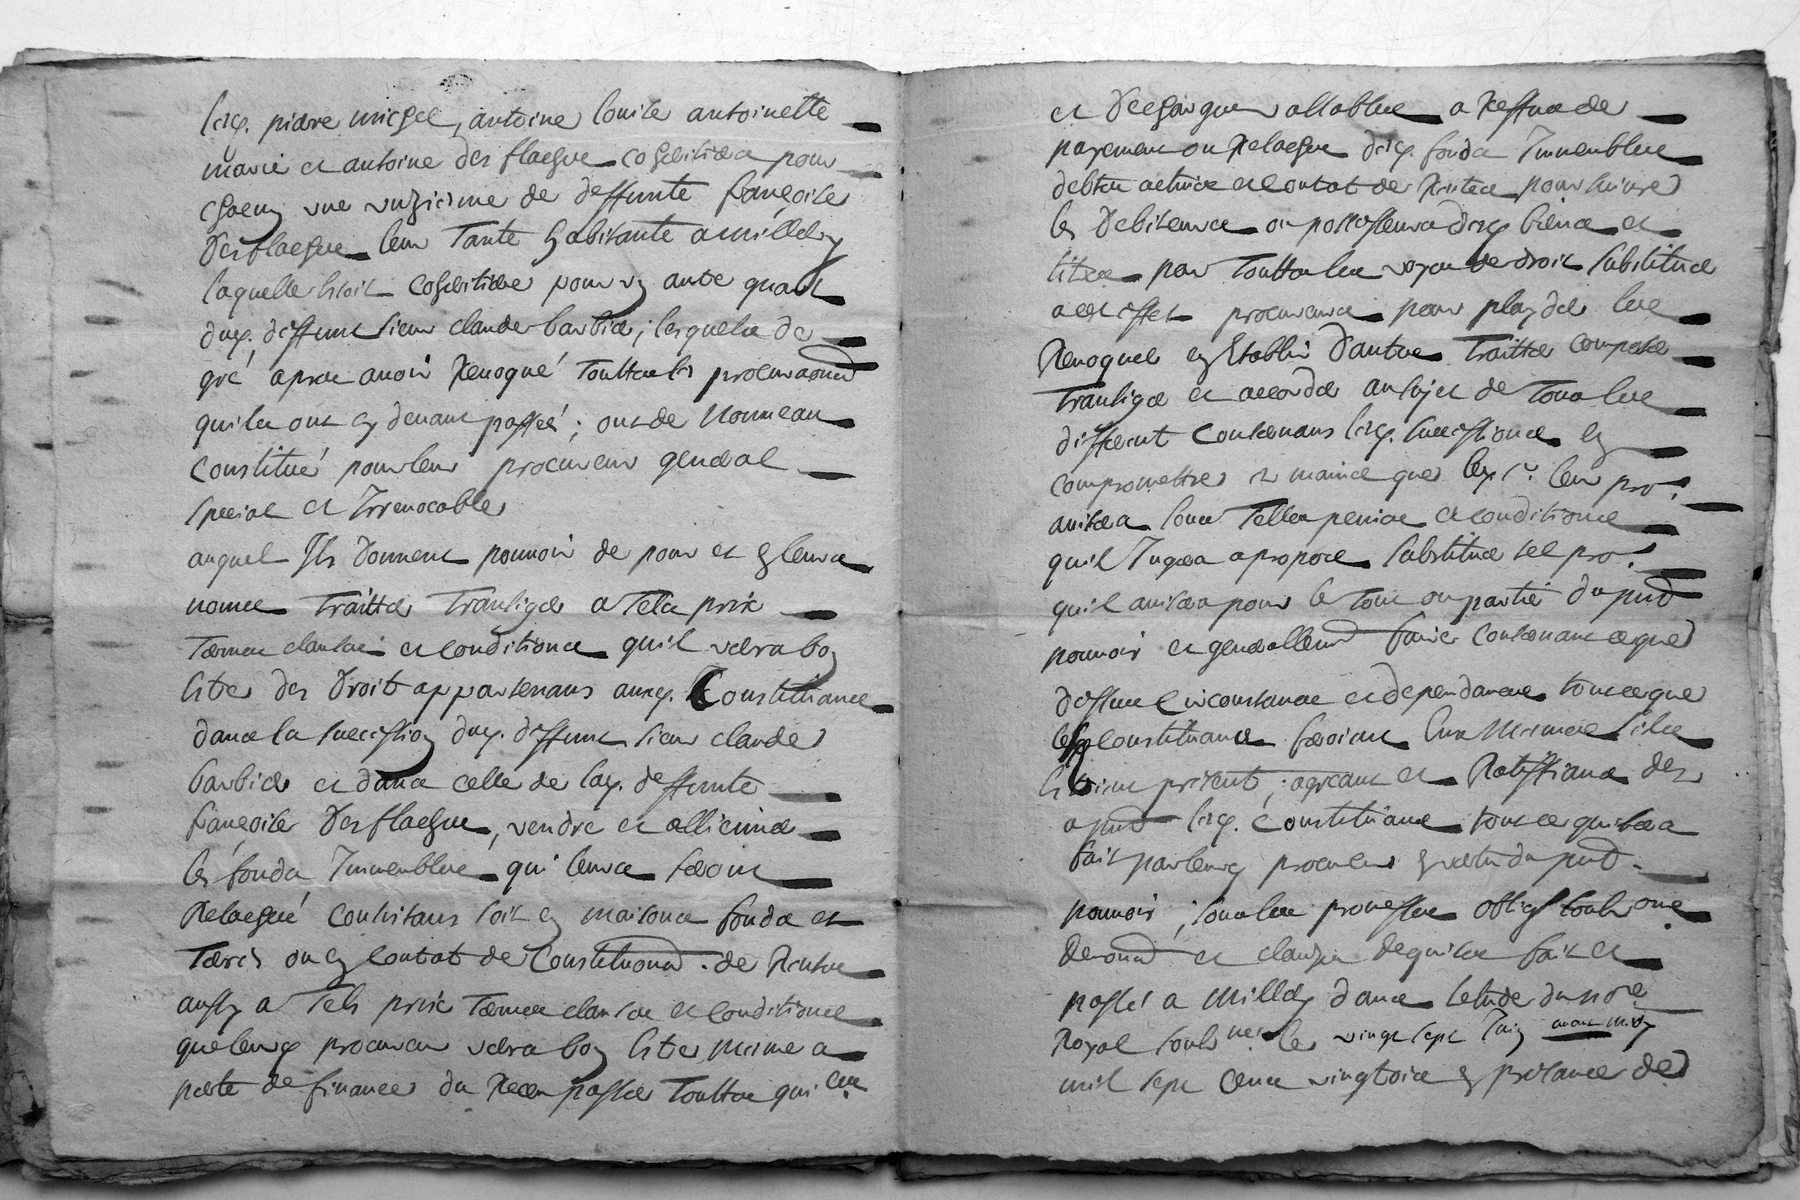 lesq. pierre michel, antoine louise antoinette
marie et antoine des flaeghe coheritiers pour
chacun une unzieme de deffunte francoise
Desflaeghe leur Tante habitante a milledy
laquelle estoit coheritiere pour un autre quart
duq. deffunt sieur claude barbier; lesquels de
gré apres avoir Revoqué Touttes les procuraons
quils ont cy devant passée; ont de Nouveau
Constitué pour leur procureur general
special et Irrevocable
auquel Ils Donnent pouvoir de pour et en leurs
noms Traitter Transiger a Tels prix
Termes clauses et conditions quil verra bon
estre des Droits appartenans ausq. Constituans
dans la succession duq. deffunt sieur claude
barbier et dans celle de laq. deffunte
francoise Desflaeghe, vendre et alliener
les fonds Immeubles qui leurs seront
Relaché consistans soit en maisons fonds et
Terres ou en Contrat de Constitutions de Rentes
aussy a Tels prix Termes clauses et conditions
que leurq procureur verra bon estre mesme a
perte de finances du Recu passer Touttes quitces
et Descharques vallables a Reffus de
payement ou Relache desq. fonds Immeubles
debtes actives et Contrat de Rentes poursuivre
les Debiteurs ou possesseurs desq biens et
titres par Touttes les voyes de droit substituer
a cest effet procureurs pour playder les
Revoquer en Establir D'autres Traitter composer
Transiger et accorder au sujet de Tous les
different Concernans lesq. successions en
compromettre es mains que lesq. sr. leur pro.
avisera sous Telles peines et conditions
quil Jugera a propos substituer tel pro.
quil avisera pour le Tout ou partie du pnt
pouvoir et generallemt faire concernant ce que
dessus Circonstances et dependances tout ce que
lesq constituans feroient Eux Mesmes silse
estoient present, agreant et Ratiffiant des
a pnt lesq. Constituans tout ce qui sera
fait par leurq procureur en vertu du pnt
pouvoir; sous les promesses oblig soub ons
Renons et clauses dequises fait et
passé a Milledy dans letude du nore
Royal soubsne le vingt sept Juin avant midy
mil sept Cens vingt trois en presence de